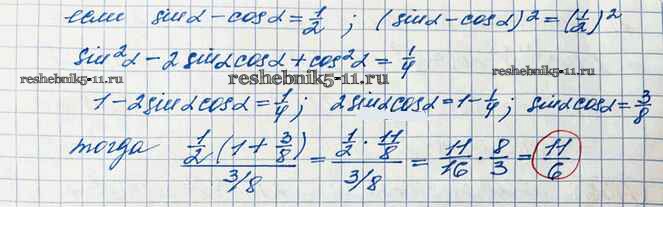 если sinα - cosα = 1/2 ; (sinα - cosα)² = (1/2)²
sin²α - 2sinαcosα + cos²α = 1/4
reshebnik5-11.ru reshebnik5-11.ru reshebnik5-11.ru
1 - 2sinαcosα = 1/4 ; 2sinαcosα = 1 - 1/4 ; sinαcosα = 3/8
тогда (1/2 · (1 + 3/8))/(3/8) = (1/2 · 11/8)/(3/8) = 11/16 · 8/3 = 11/6